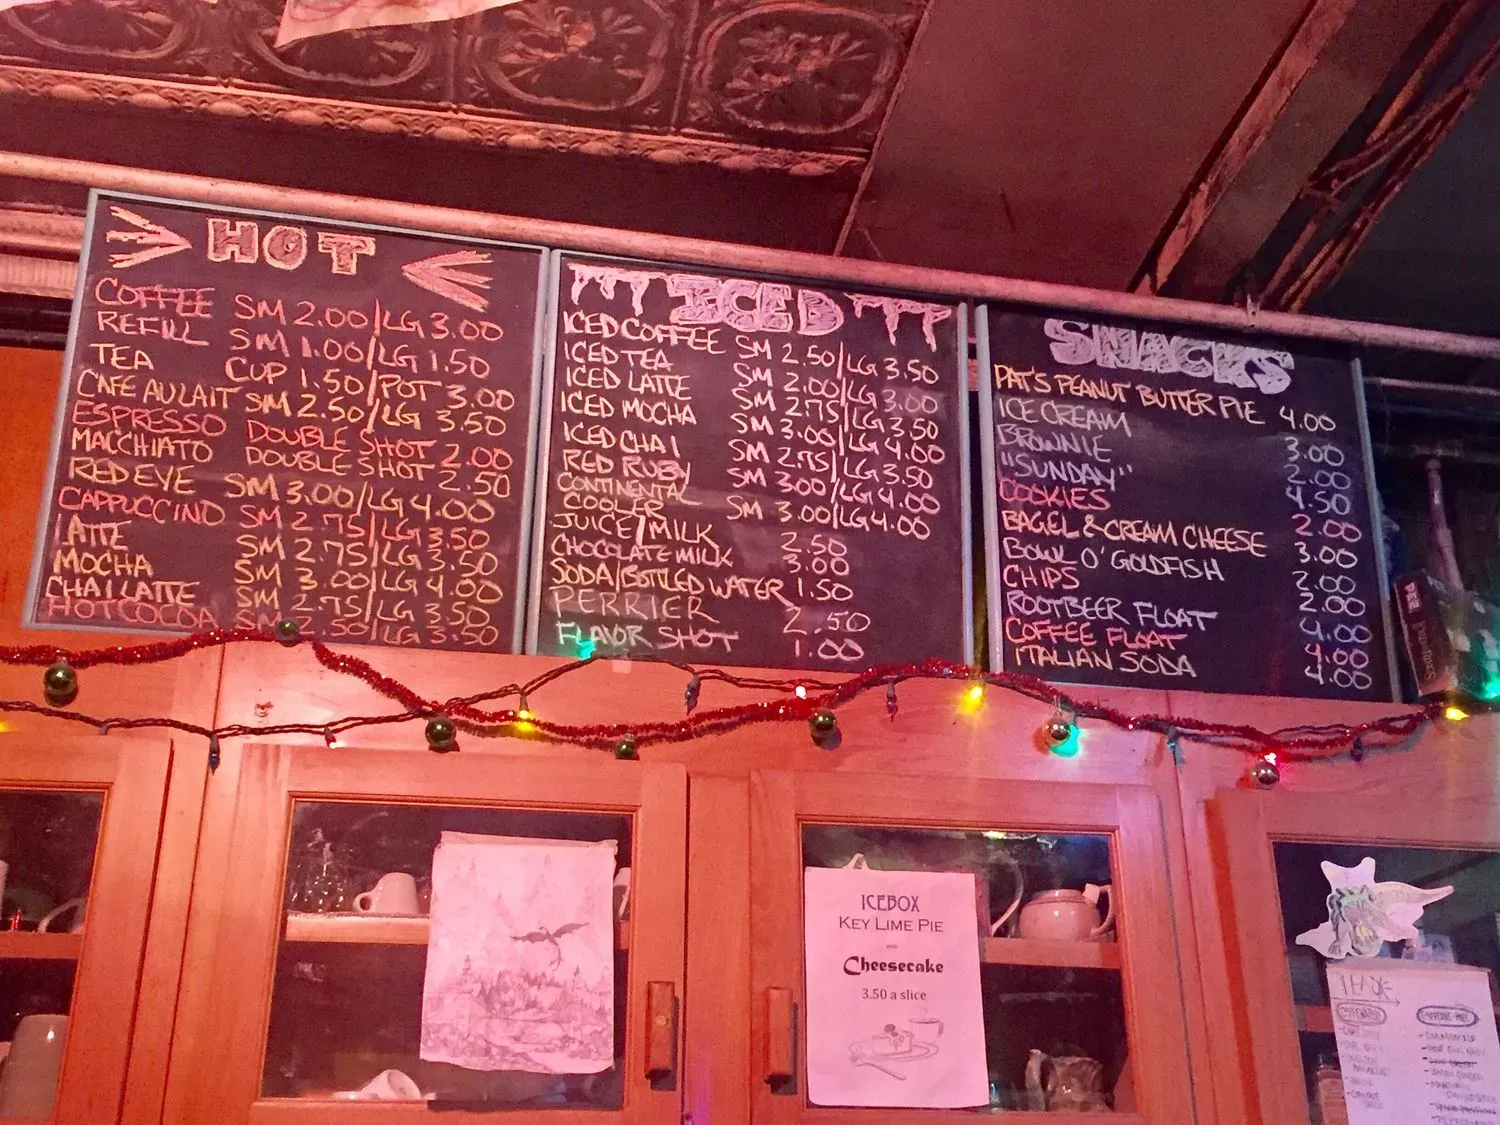 HOT
COFFEE SM 2.00/LG 3.00
REFILL SM 1.00/LG 1.50
TEA CUP 1.50/POT 3.00
CAFÉ AU LAIT SM 2.50/LG 3.50
ESPRESSO DOUBLE SHOT 2.00
MACCHIATO DOUBLE SHOT 2.50
RED EYE SM 3.00/LG 4.00
CAPPUCCINO SM 2.75/LG 3.50
LATTE SM 2.75/LG 3.50
MOCHA SM 3.00/LG 4.00
CHAI LATTE SM 2.75/LG 3.50
HOT COCOA SM 2.50/LG 3.50
ICED
ICED COFFEE SM 2.50/LG 3.50
ICED TEA SM 2.00/LG 3.00
ICED LATTE SM 2.75/LG 3.50
ICED MOCHA SM 3.00/LG 4.00
ICED CHAI SM 2.75/LG 3.50
RED RUBY SM 3.00/LG 4.00
CONTINENTAL
COOLER SM 3.00/LG 4.00
JUICE/MILK 2.50
CHOCOLATE MILK 3.00
SODA/BOTTLED WATER 1.50
PERRIER 2.50
FLAVOR SHOT 1.00
SNACKS
PAT'S PEANUT BUTTER PIE 4.00
ICE CREAM 3.00
BROWNIE 2.00
"SUNDAY" 4.50
COOKIES 2.00
BAGEL & CREAM CHEESE 3.00
BOWL O' GOLDFISH 2.00
CHIPS 2.00
ROOTBEER FLOAT 4.00
COFFEE FLOAT 4.00
ITALIAN SODA 4.00
ICEBOX
KEY LIME PIE
AND
Cheesecake
3.50 a slice